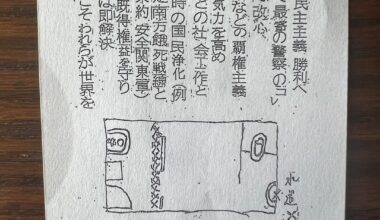 民主主義 勝利へ
の警察」のコ
改心
などの覇権主義
気力を高め
どの社会工作と
時の国民浄化(例
南方餓死戦線と
条約 安全関東軍)
既得権益を守り
は即解決
こそわれらが世界を
水道